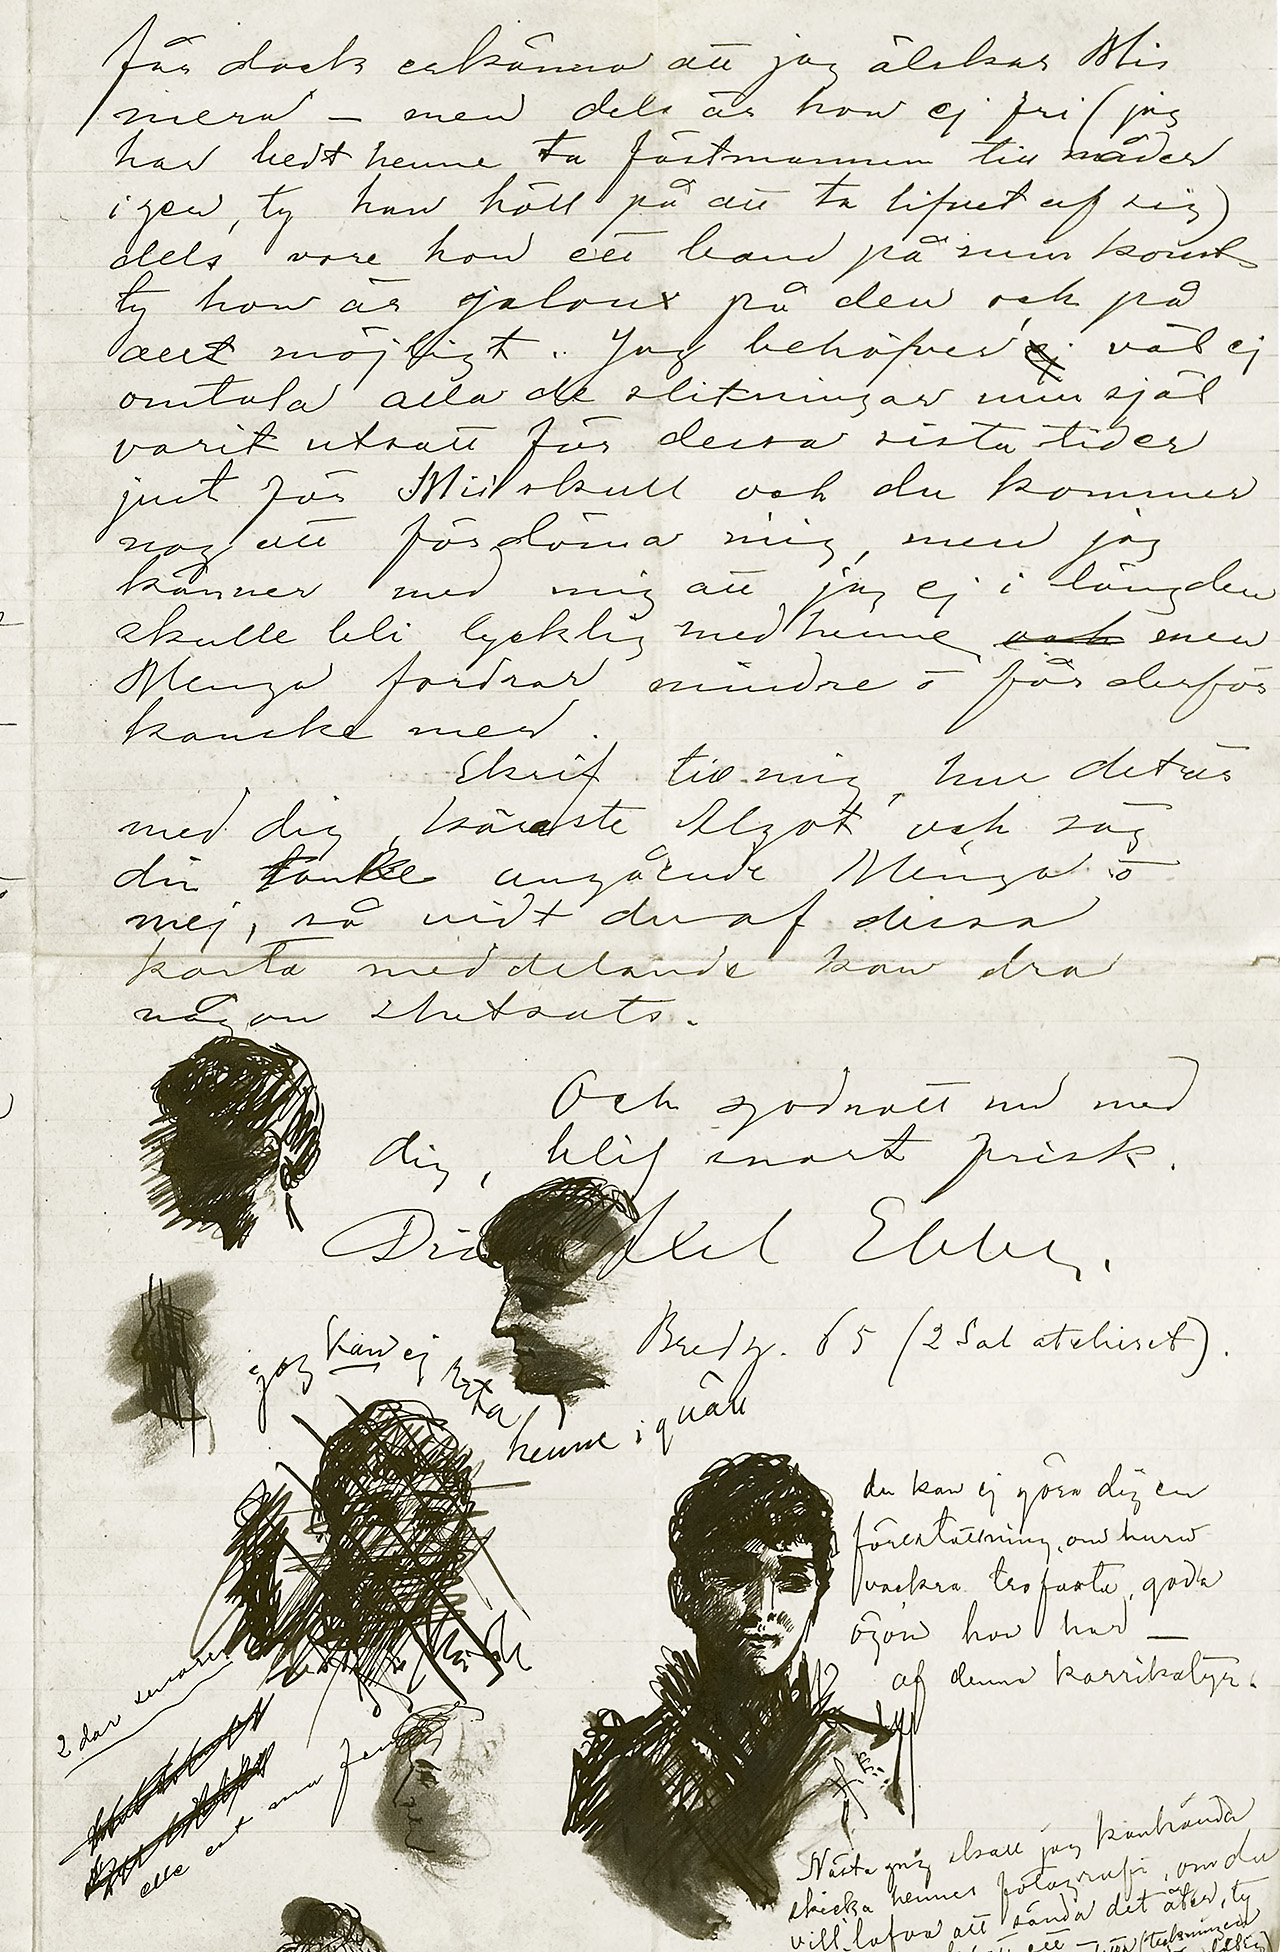 får dock erkänna att jag älskar Mis
mera – men dels är hon ej fri (jag
har bedt henne ta fästmannen till nåder
igen, ty han höll på att ta lifvet af sig)
dels vore hon ett band på min konst
ty hon är jaloux på den och på
allt möjligt. Jag behöfver ej väl ej
omtala alla de slitningar min själ
varit utsatt för dessa sista tider
just för Mis skull och du kommer
nog att fördöma mig, men jag
känner med mig att jag ej i längden
skulle bli lycklig med henne och men
Menga fordrar mindre o får derför
kanske mer.
Skrif till mig, hur det är
med dig, käraste Algot och säg
din tanke angående Menga o
mej, så vidt du af dessa
korta meddelande kan dra
någon slutsats.
Och godnatt nu med
dig, blif snart frisk.
Din Axel Ebbe.
Bredg. 65 (2 Sal atelieret).
jag kan ej rita
henne i qväll
du kan ej göra dig en
föreställning om huru
vackra trofasta, goda
ögon hon har –
af denna karrikatyr.
2 dar senare
elle est une femme
Nästa gång skall jag kanhända
skicka hennes fotografi, om du
vill lofva att sända det åter, ty